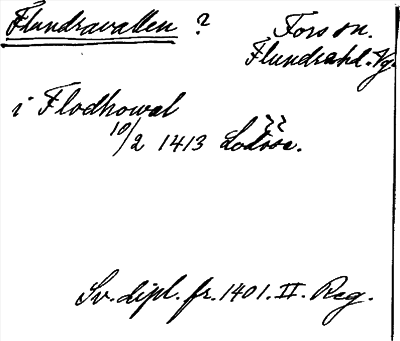 Flundravallen ? Fors sn.
Flundrehd. Vg.
i Flodhowal
10/2 1413 Lodose.
Sv. dipl. fr. 1401. II. Reg.